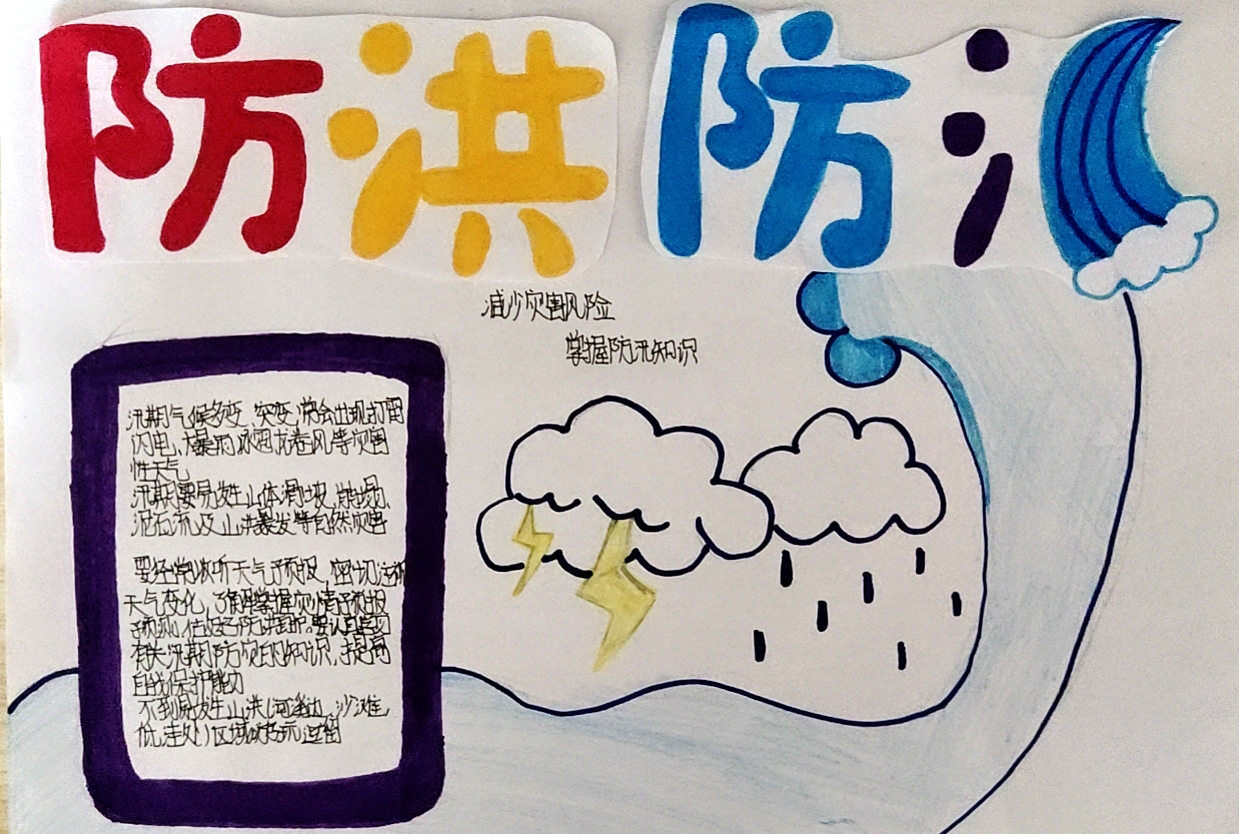 防洪防汛
减少灾害风险
掌握防汛知识
汛期气候多变,突变,常会出现打雷
闪电、大暴雨冰雹龙卷风等灾害
性天气
汛期要易发生山体滑坡,崩塌、
泥石流及山洪暴发等自然灾害
要经常收听天气预报,密切注视
天气变化,了解掌握灾情预报
预测,做好防洪,要认真学习
有关汛期防灾的知识,提高
自我保护能力
不到易发生山洪河边、沙滩
低洼处区域游玩逗留